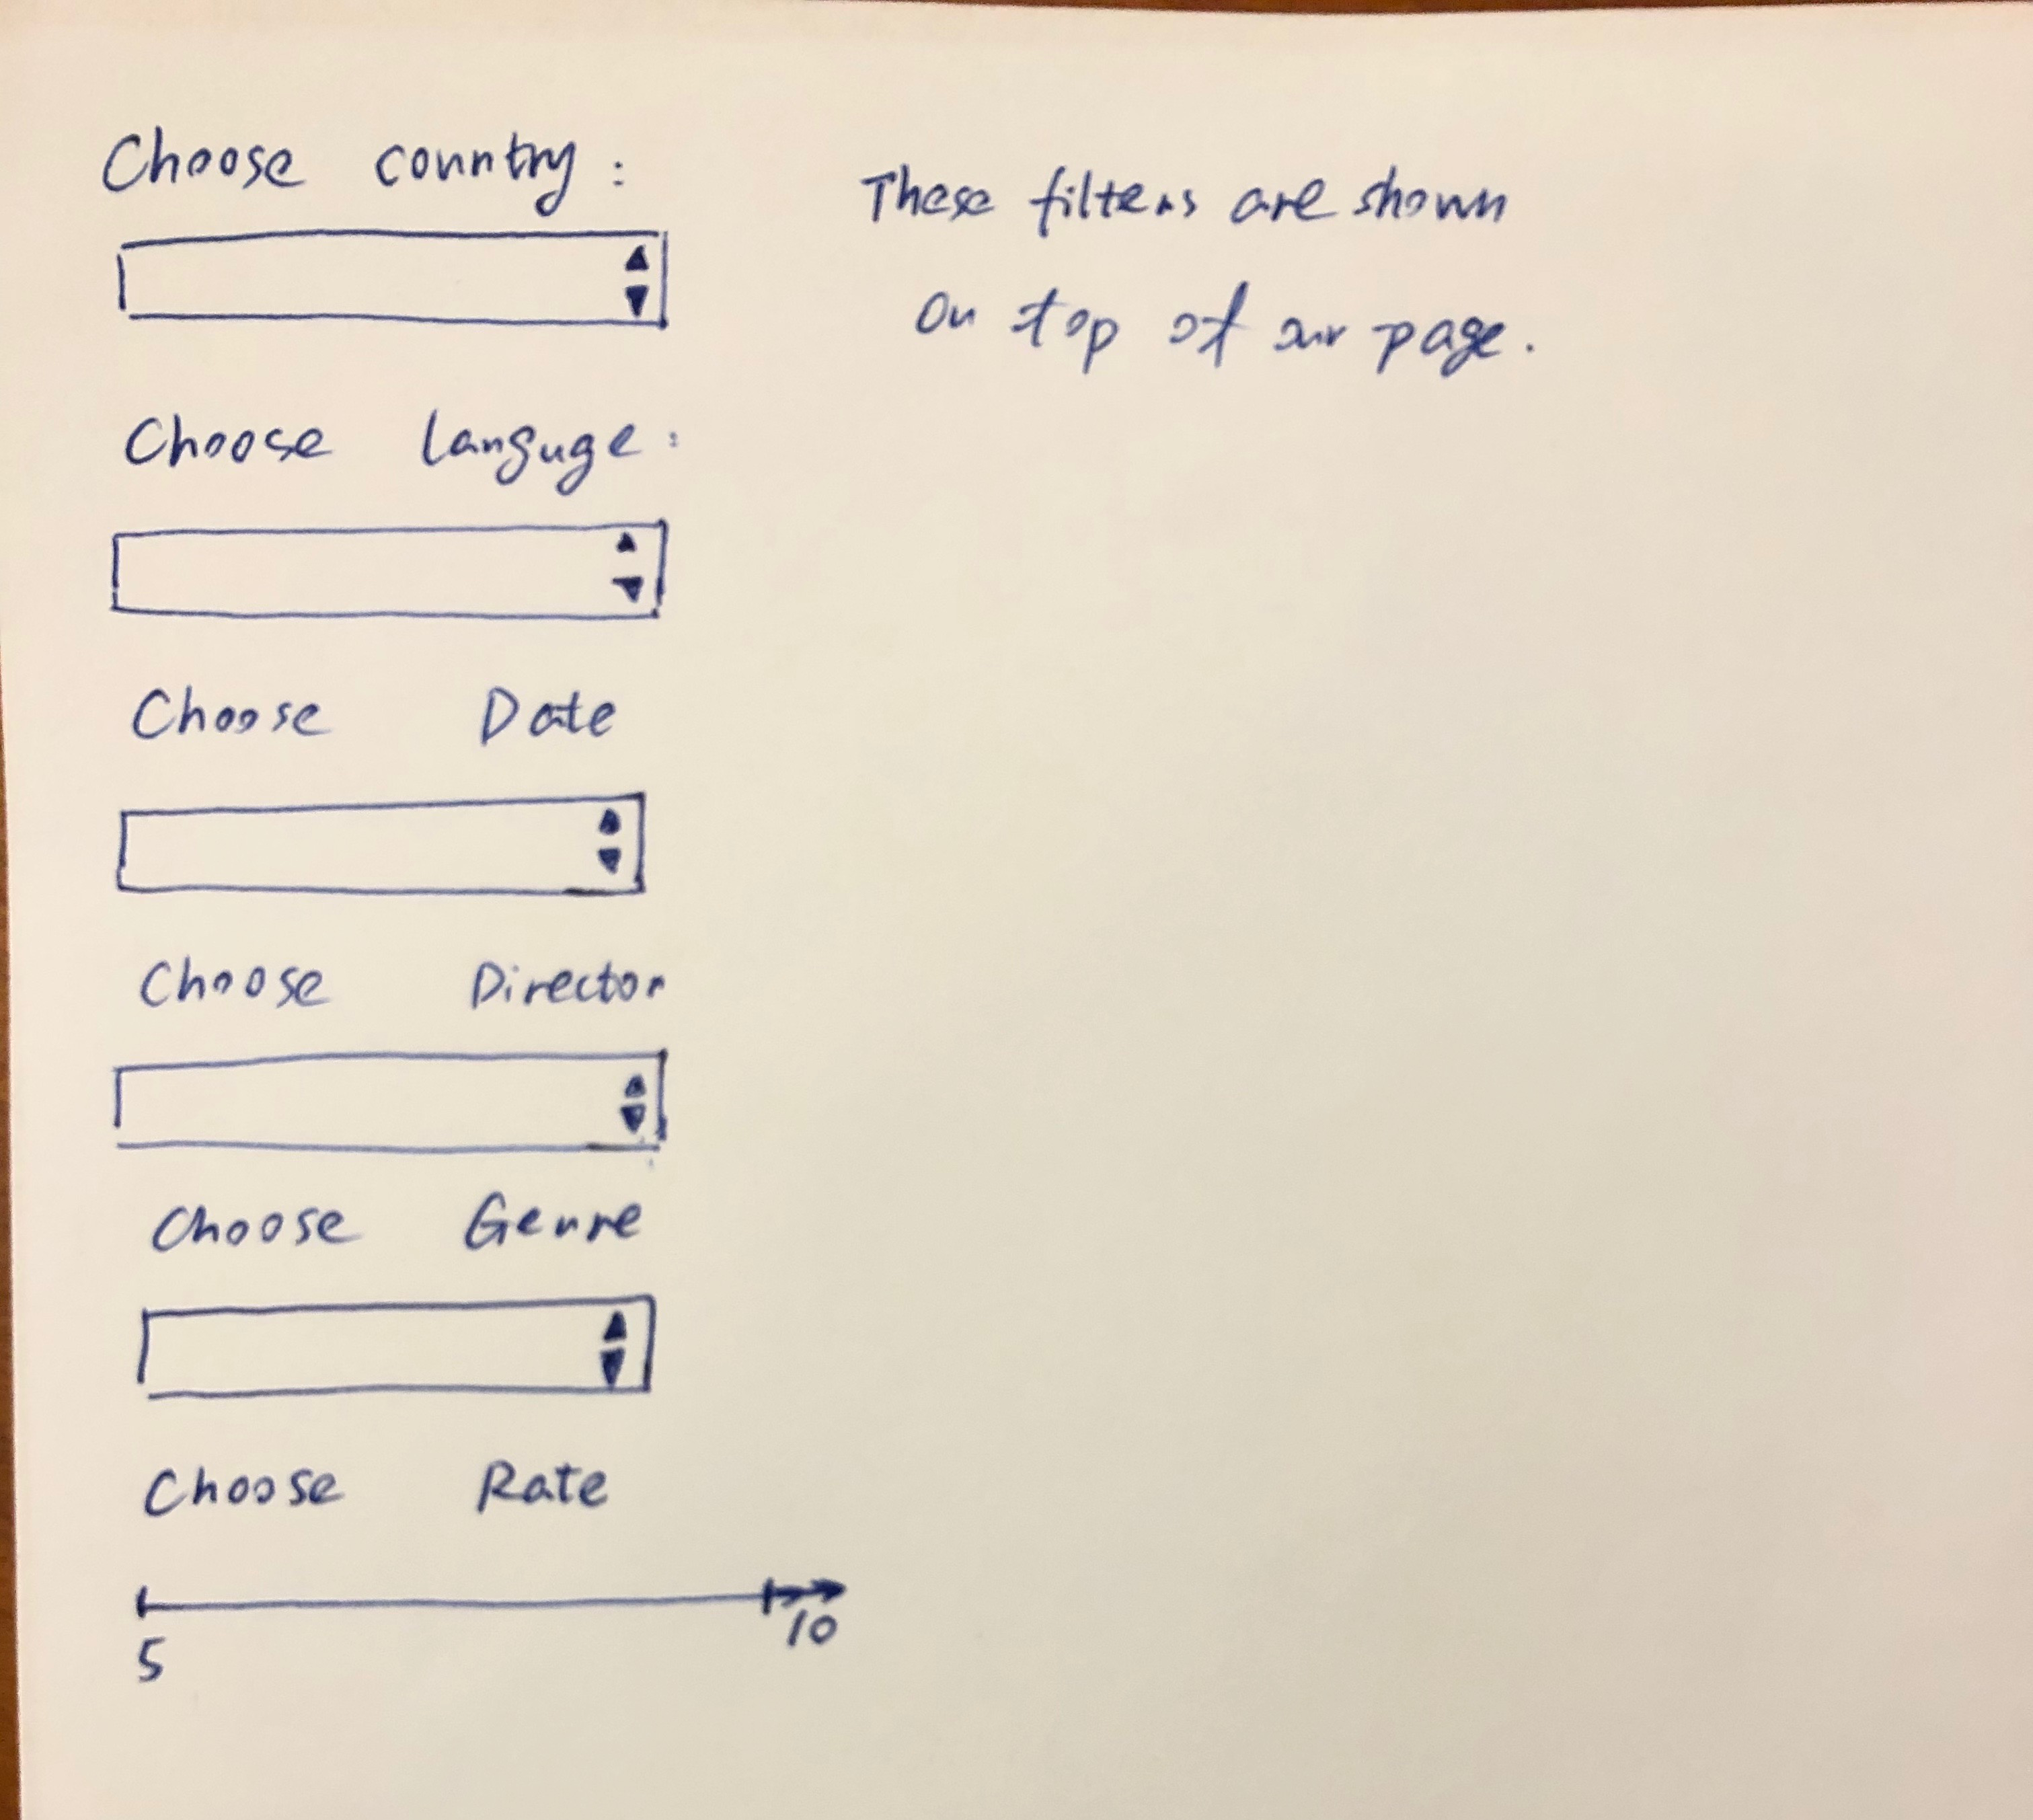 Choose country:
These filters are shown
on top of our page.
Choose Languge:
Choose Date
Choose Director
Choose Genre
Choose Rate
5 10